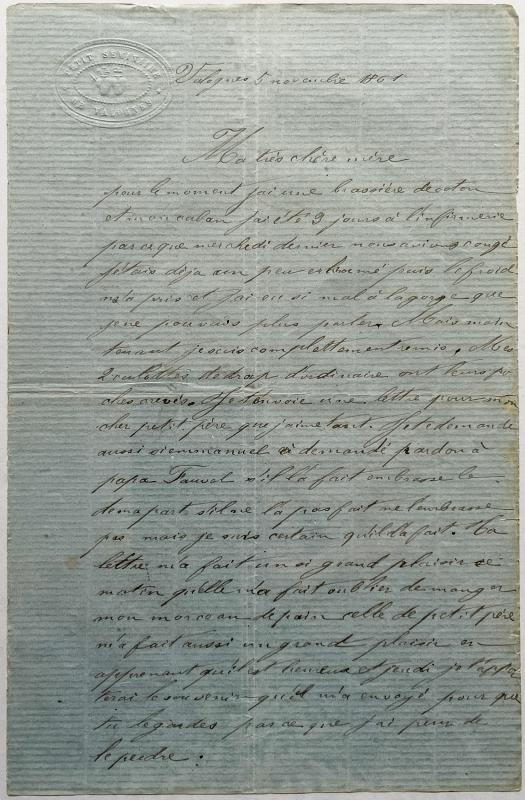 PETIT SÉMINAIRE
DE VALOGNES
Valognes 5 novembre 1861
Ma très chère mère
pour le moment j'ai une brassière de coton
et mon caban j'ai été 9 jours à l'infirmerie
parceque merchedi dernier nous avions congé
j'étais déja un peu enrhumé puis le froid
m'a pris et j'ai eu si mal à la gorge que
je ne pouvais plus parler. Mais main
tenant je suis complettement remis. Mes
2 culottes de drap d'ordinaire ont leurs po
ches crevés. Je t'envoie une lettre pour mon
cher petit père que j'aime tant. Je te demande
aussi si emmanuel a demandé pardon à
papa Fauvel s'il l'a fait embrasse le
de ma part s'il ne l'a pas fait ne l'embrasse
pas mais je suis certain qu'il l'a fait. Ta
lettre m'a fait un si grand plaisir ce
matin qu'elle m'a fait oublier de manger
mon morceau de pain celle de petit père
m'a fait aussi un grand plaisir en
apprenant qu'il est heureux et jeudi je t'appor
terai le souvenir qu'il m'a envoyé pour que
tu le gardes parce que j'ai peur de
le perdre.